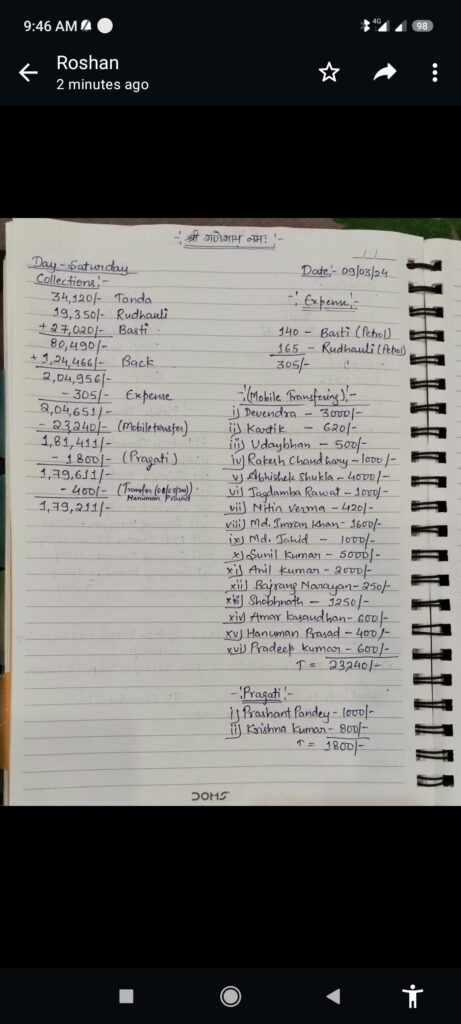 9:46 AM
4G 98
Roshan
2 minutes ago
श्री गणेशाय नमः
Day - Saturday
Date:- 09/03/24
Collections:-
34,120/- Tanda
19,350/- Rudhauli
+ 27,020/- Basti
80,490/-
+ 1,24,466/- Back
2,04,956/-
- 305/- Expense
2,04,651/-
- 23,240/- (Mobile transfer)
1,81,411/-
- 1800/- (Pragati)
1,79,611/-
- 400/- (Transfer (08/03/24) Hanuman Prasad
1,79,211/-
-:Expense:-
140 - Basti (Petrol)
165 - Rudhauli (Petrol)
305/-
-:(Mobile Transfering):-
i) Devendra - 3000/-
ii) Kartik - 620/-
iii) Udaybhan - 500/-
iv) Rakesh Chaudhary - 1000/-
v) Abhishek Shukla - 4000/-
vi) Jagdamba Rawat - 1000/-
vii) Nitin Verma - 420/-
viii) Md. Imran Khan - 1600/-
ix) Md. Jahid - 1000/-
x) Sunil Kumar - 5000/-
xi) Anil Kumar - 2000/-
xii) Bajrang Narayan - 250/-
xiii) Shobhnath - 1250/-
xiv) Amar Kasaudhan - 600/-
xv) Hanuman Prasad - 400/-
xvi) Pradeep Kumar - 600/-
T = 23240/-
-:Pragati:-
i) Prashant Pandey - 1000/-
ii) Krishna Kumar - 800/-
T = 1800/-
DOMS